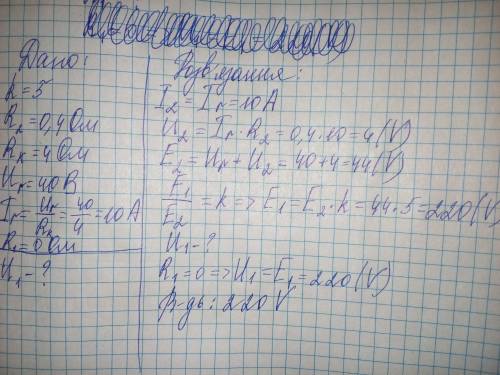 Дано:
k=5
R₂=0,4 Ом
Rк=4 Ом
Uк=40 В
Iк=Uк/Rк=40/4=10 А
R₁=0 Ом
U₁-?
Розв'язання:
I₂=Iк=10 А
U₂=Iк·R₂=0,4·10=4(V)
E₂=Uк+U₂=40+4=44(V)
E₁/E₂=k=>E₁=E₂·k=44·5=220(V)
U₁-?
R₁=0=>U₁=E₁=220(V)
В-дь: 220 V